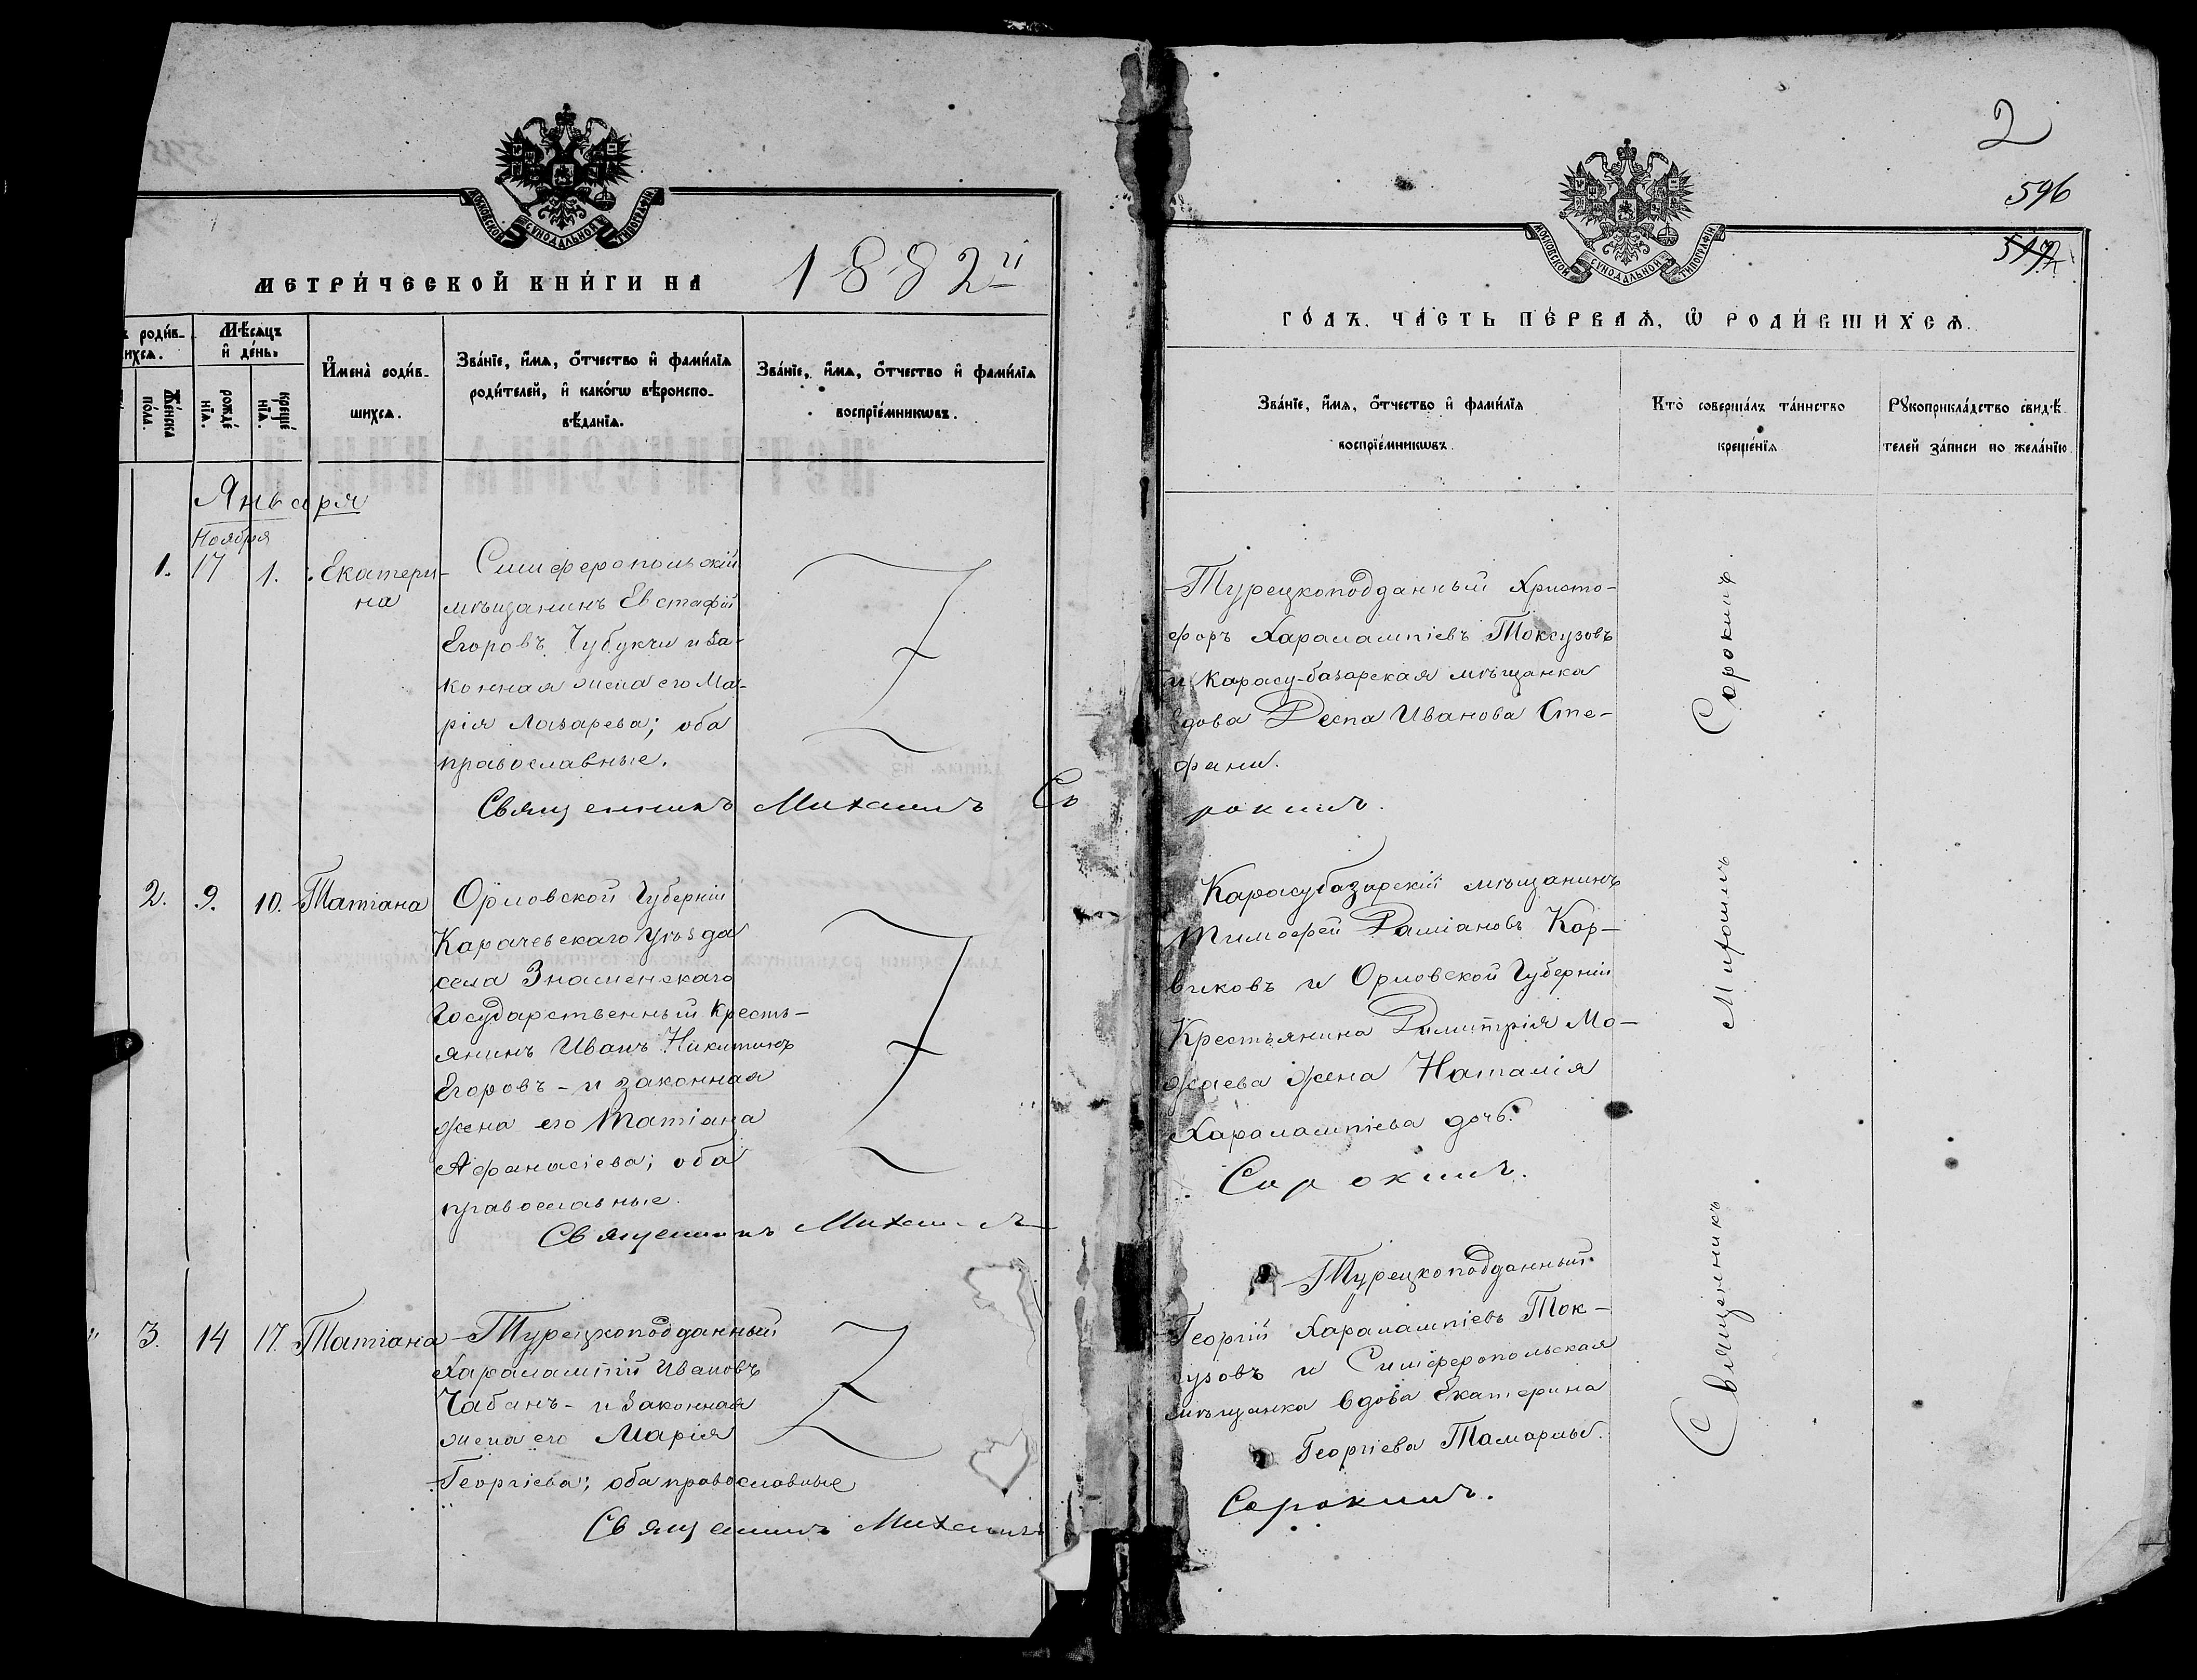 МОСКОВСКОЙ СѴНОДАЛЬНОЙ ТИПОГРАФІИ
МЕТРИ́ЧЕСКОЙ КНИ́ГИ НА 1882й
родив-
шихся.
Мѣсяцъ
и день.
Имена родив-
шихся.
Званіе, имя, отчество и фамилія
родителей, и какогѡ вѣроиспо-
вѣданія.
Званіе, имя, отчество и фамилія
воспріемникѡвъ.
Женска
пола.
рожде
нія.
креще
нія.
Января
Ноября
1. 17 1. Екатери-
на
Симферопольскій
мѣщанинъ Евстафій
Егоровъ Чубукчи и за-
конная жена его Ма-
рія Лазарева; оба
православные.
Священникъ Михаилъ Со
2. 9. 10. Татіана
Орловской Губерніи
Карачевскаго уѣзда
села Знаменскаго
Государственный кресть-
янинъ Иванъ Никитинъ
Егоровъ - и законная
жена его Татіана
Афанасіева; оба
православные.
Священникъ Михаилъ
3. 14 17. Татіана
Турецкоподданный
Харалампій Ивановъ
Чабанъ - и законная
жена его Марія
Георгіева; оба православные
Священникъ Михаилъ
2
596
МОСКОВСКОЙ СѴНОДАЛЬНОЙ ТИПОГРАФІИ
ГО́ДЪ. ЧА́СТЬ ПЕ́РВАѦ, Ѡ РОДИ́ВШИХСѦ.
Званіе, имя, отчество и фамилія
воспріемникѡвъ.
Кто совершалъ таинство
крещенія
Рꙋкоприкладство свидѣ-
телей записи по желанію
Турецкоподданный Христо-
форъ Харалампіевъ Токсузовъ
и Карасу-базарская мѣщанка
вдова Деспа Иванова Сте-
фани.
рокинъ.
Карасубазарскій мѣщанинъ
Тимофей Даміановъ Кор-
виковъ и Орловской Губерніи
Крестьянина Димитрія Мо-
жаева жена Наталія
Харалампіева дочь.
Сорокинъ.
Турецкоподданный
Георгій Харалампіевъ Ток-
сузовъ и Симферопольская
мѣщанка вдова Екатерина
Георгіева Тамарлы.
Сорокинъ.
Священникъ Михаилъ Сорокинъ